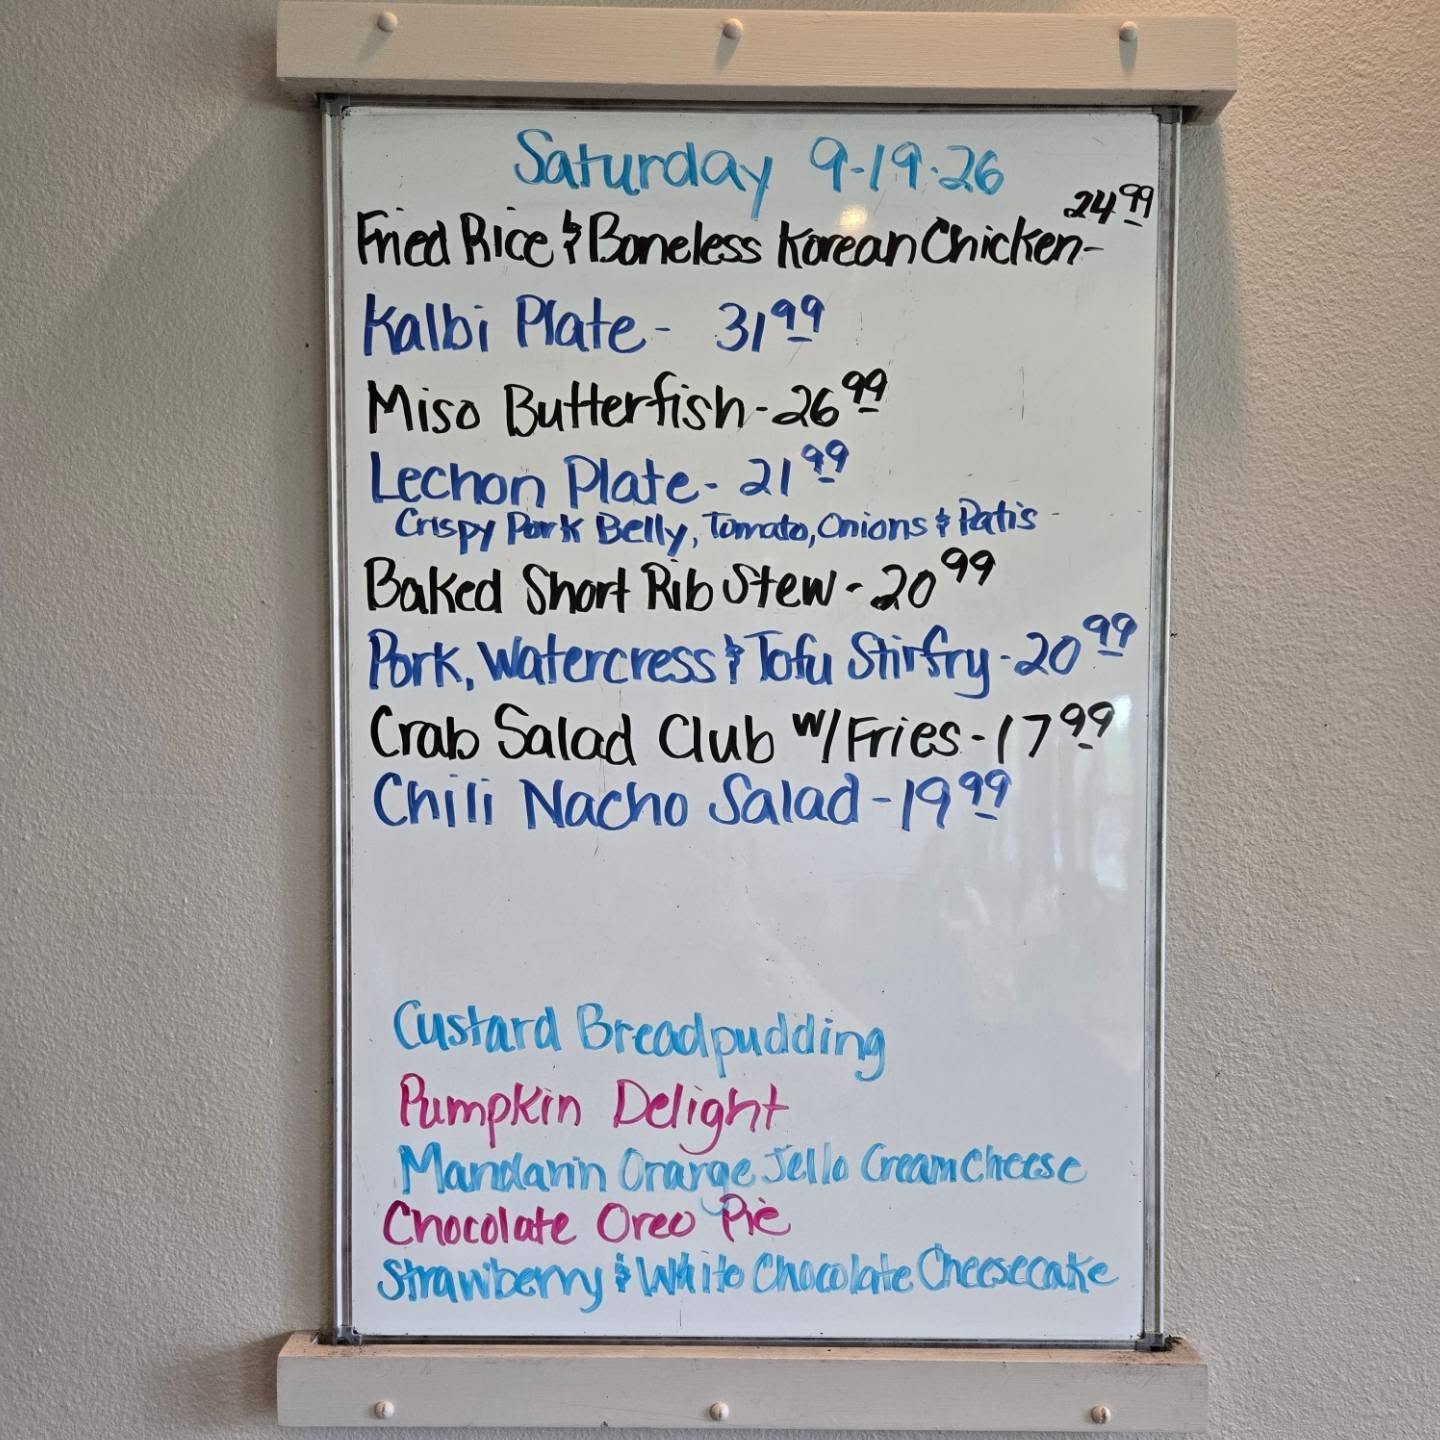 Saturday 9-19-26
Fried Rice & Boneless Korean Chicken- 24.99
Kalbi Plate - 31.99
Miso Butterfish - 26.99
Lechon Plate - 21.99
Crispy Pork Belly, Tomato, Onions & Patis
Baked Short Rib Stew - 20.99
Pork, Watercress & Tofu Stirfry - 20.99
Crab Salad Club w/ Fries - 17.99
Chili Nacho Salad - 19.99
Custard Breadpudding
Pumpkin Delight
Mandarin Orange Jello Creamcheese
Chocolate Oreo Pie
Strawberry & White Chocolate Cheesecake